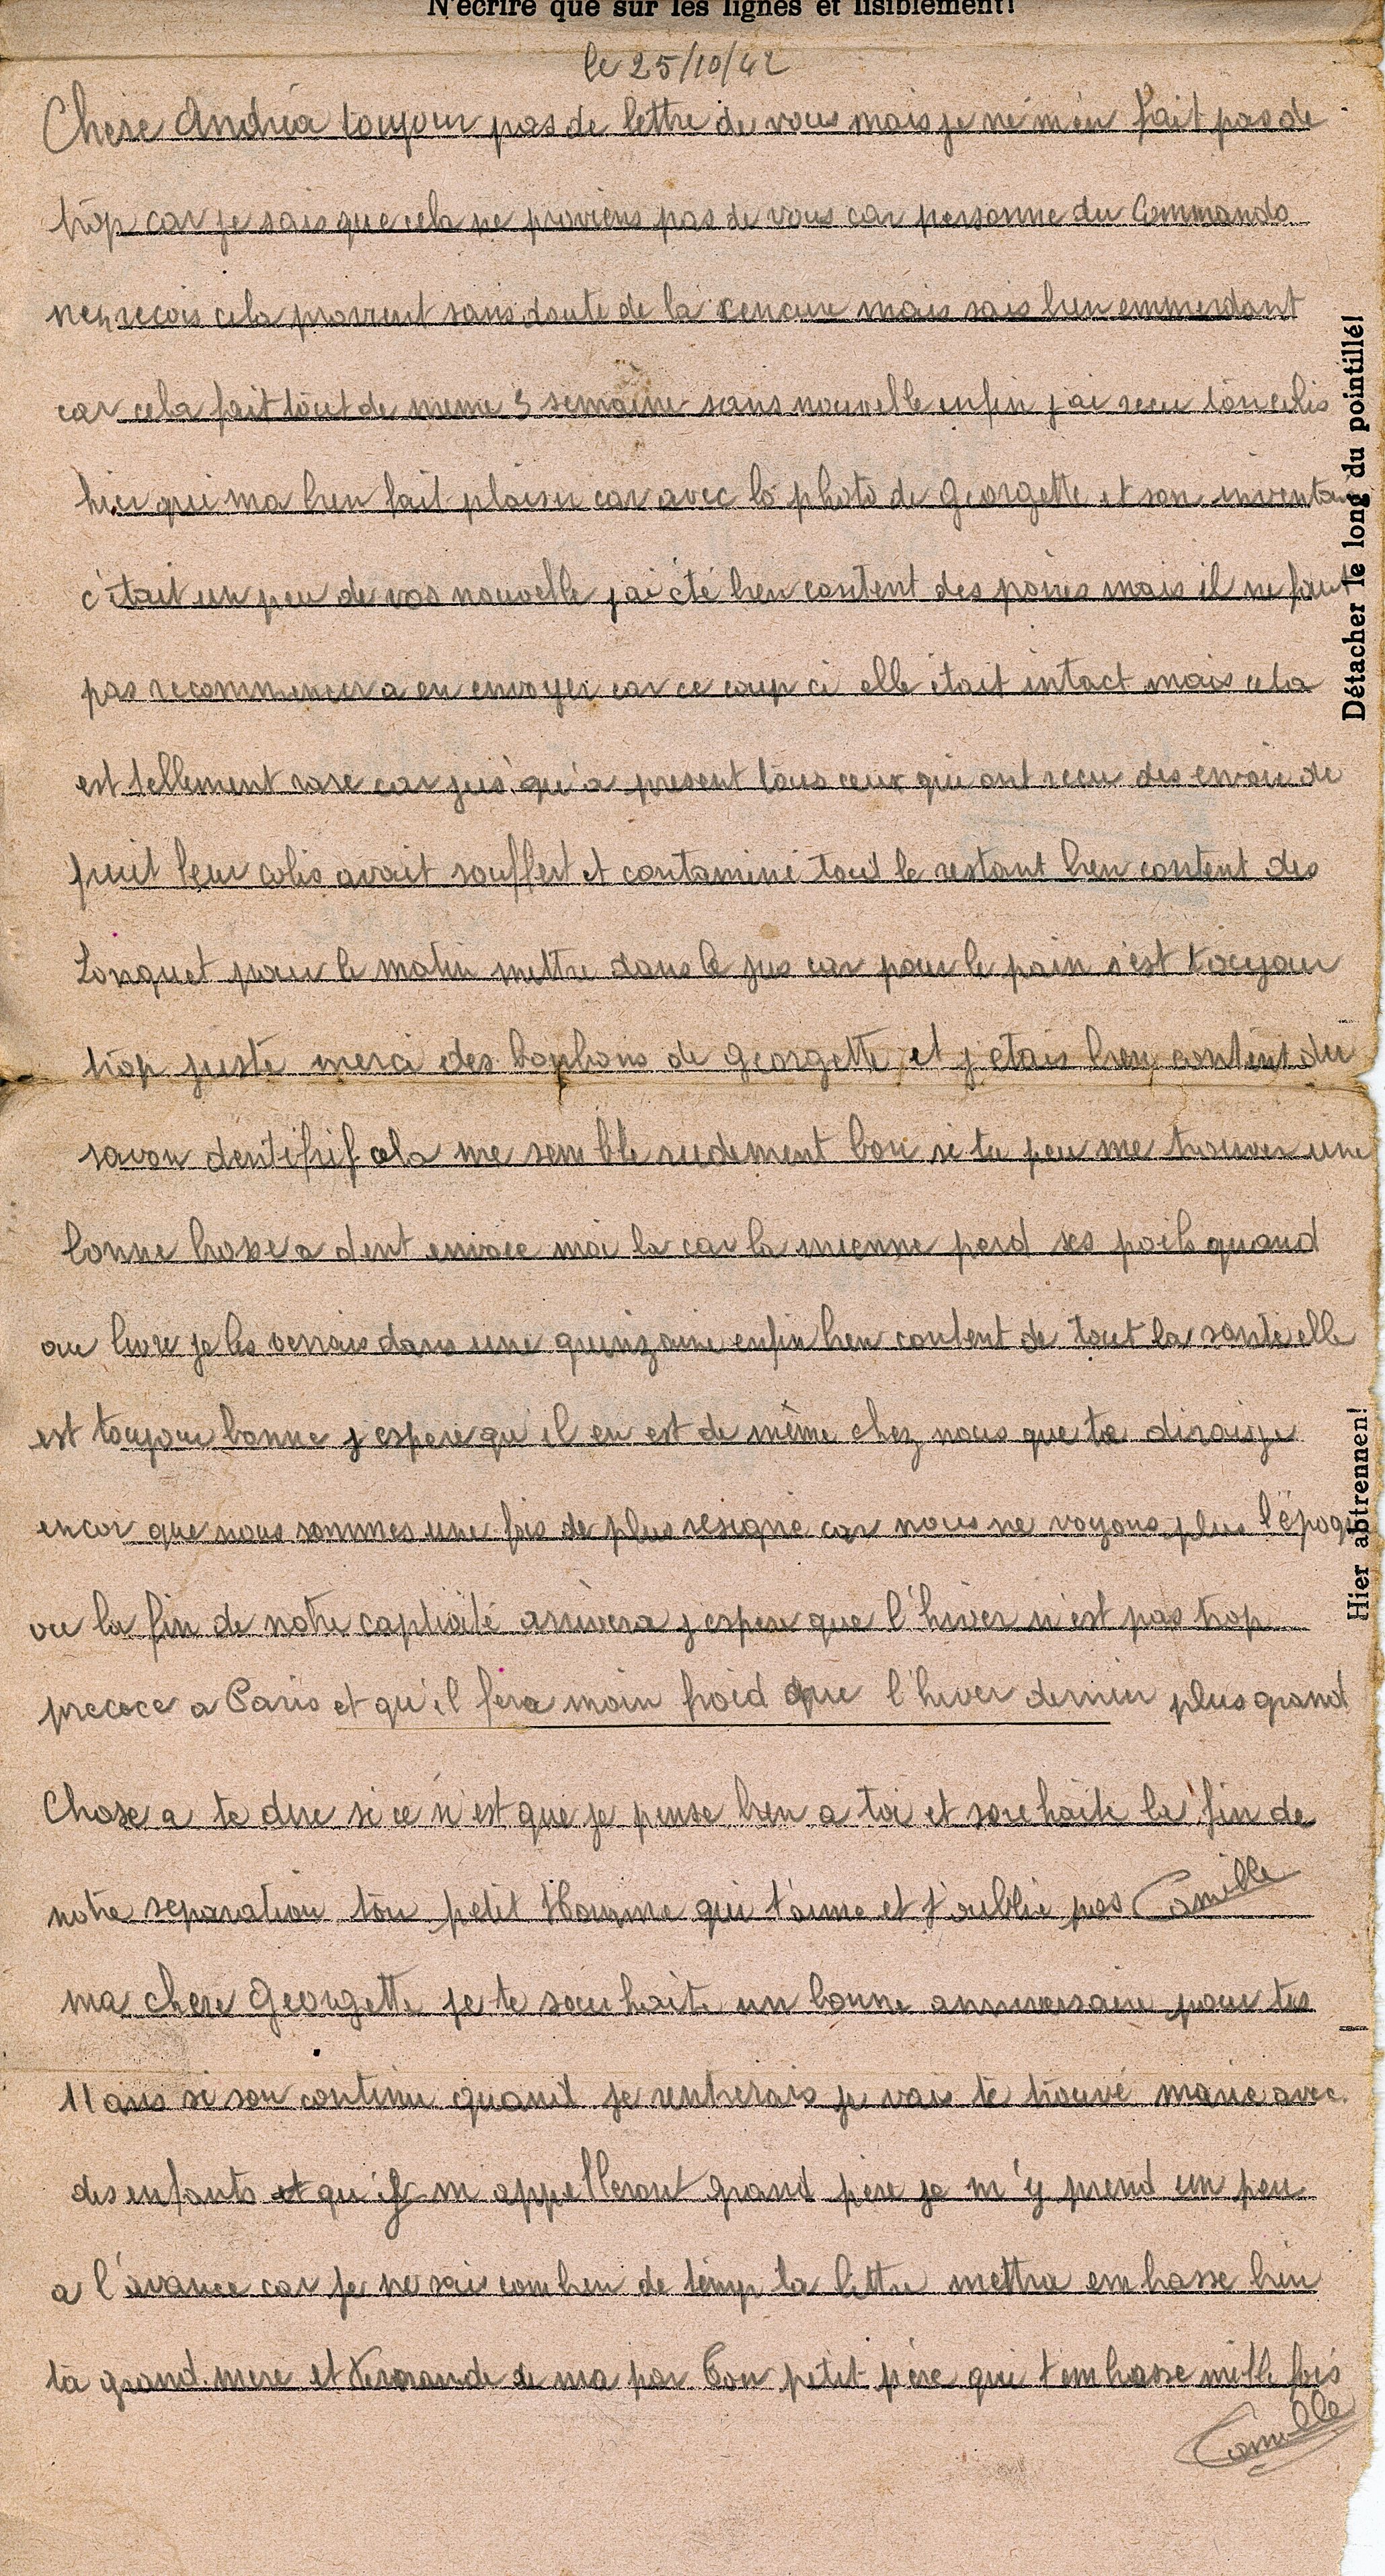 N'écrire que sur les lignes et lisiblement!
le 25/10/42
Chere Andréa toujour pas de lettre de vous mais je ne m'en fait pas de
trop car je sais que cela ne proviens pas de vous car personne du Commando
n'en recois cela provient sans doute de la cencure mais sais bien emmerdant
car cela fait tout de meme 3 semaine sans nouvelle enfin j'ai recu ton colis
hier qui ma bien fait plaisir car avec la photo de Georgette et son
c'était un peu de vos nouvelle j'ai été bien content des poires mais il ne faut
pas recommencer a en envoyer car ce coup ci elle était intact mais cela
est tellement rare car jus'qu'a present tous ceux qui ont recu des envoie de
fruit leur colis avait souffert et contaminé tout le restant bien content des
Longuet pour le matin mettre dans le jus car pour le pain s'est toujour
trop juste merci des bonbons de Georgette et j'etais bien content du
savon dentifrif cela me semble rudement bon si tu peu me trouver une
bonne brosse a dent envoie moi la car la mienne perd ses poils quand
au livre je les verrais dans une quinzaine enfin bien content de tout la santé elle
est toujour bonne j'espere qu'il en est de même chez nous que te diraisje
encor que nous sommes une fois de plus résigné car nous ne voyons plus l'époque
ou la fin de notre captivité arrivera j'espere que l'hiver n'est pas trop
precoce a Paris et qu'il fera moin froid que l'hiver dernier plus grand
Chose a te dire si ce n'est que je pense bien a toi et souhaite la fin de
notre separation ton petit Homme qui t'aime et t'oublie pas Camille
ma chere Georgette je te souhaite un bonne anniversaire pour tes
11 ans si son continu quand je rentrerais je vais te trouvé marié avec
des enfants et qu'il m'appelleront grand pére je m'y prend un peu
a l'avance car je ne sais combien de temp la lettre mettra embrasse bien
ta grand mere et de ma par Ton petit pére qui t'embrasse mille fois
Camille
Détacher le long du pointillé!
Hier abtrennen!